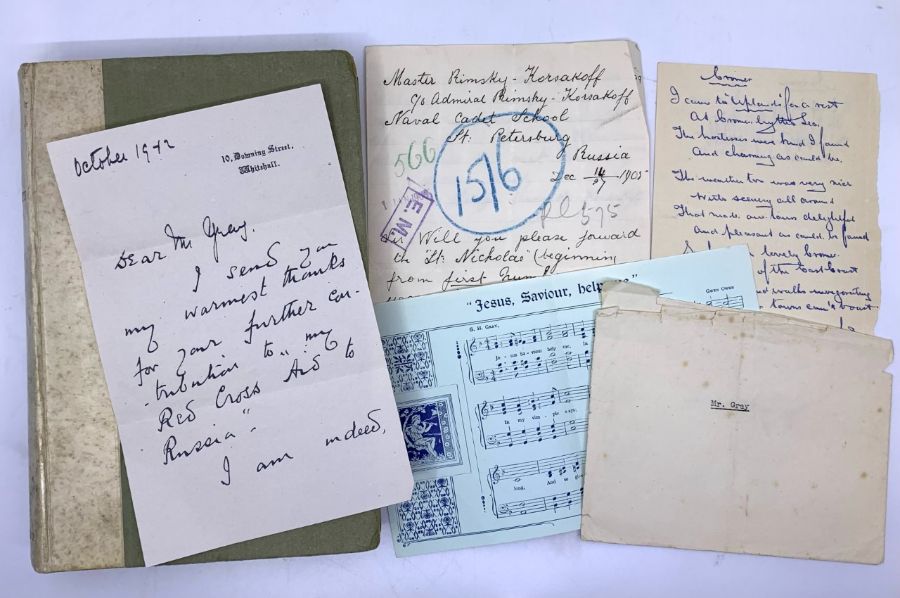 October 1942
10, Downing Street,
Whitehall.
Dear Mr Gray.
I send you
my warmest thanks
for your further con-
-tribution to "my
Red Cross Aid to
Russia".
I am indeed,
Master Rimsky-Korsakoff
c/o Admiral Rimsky-Korsakoff
Naval Cadet School
St. Petersburg
Russia
Dec 14/27 1905
566
15/6
E.M.
575
Sir Will you please forward
the "St. Nicholas" beginning
from first
Cromer
I came to Uplands for a rest
At Cromer by the Sea.
The hostess was kind I found
And charming as could be.
The weather too was very nice
With scenery all around
That made our hours delightful
And pleasant as could be found
lovely Cromer
of the East Coast
walks invigorating
town can't boast
"Jesus, Saviour, help
G. H. Gray.
Gwen Owen
In my sim - ple
kind, And so
Mr. Gray